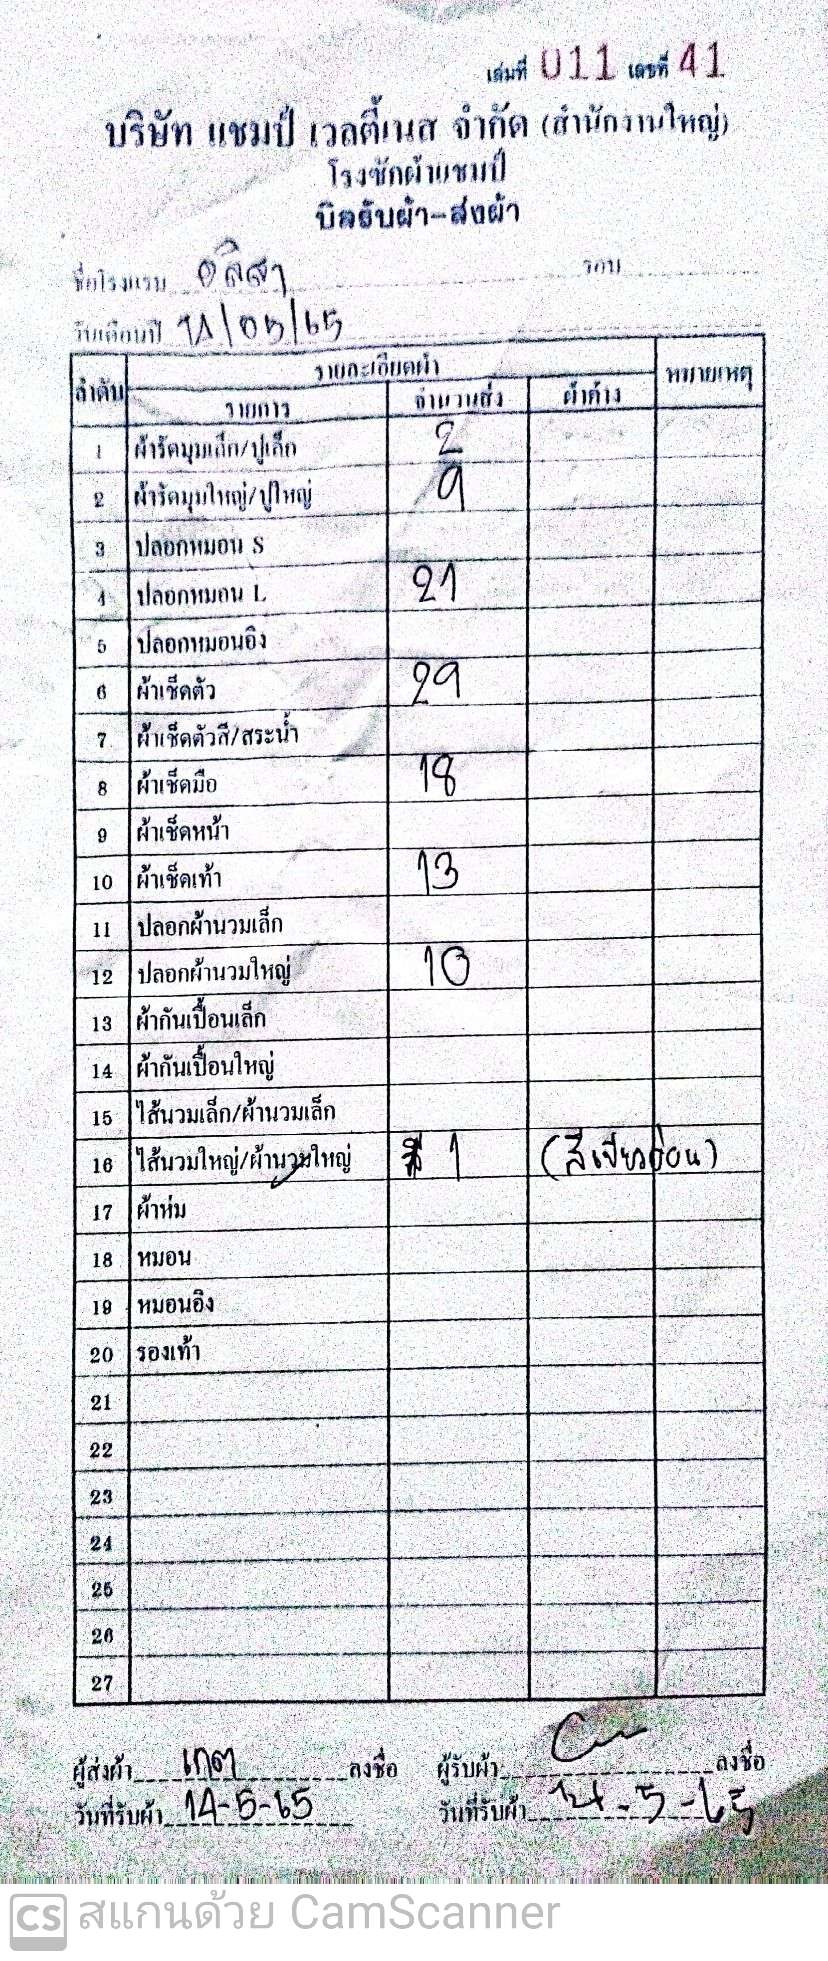 เล่มที่ 011 เลขที่ 41
บริษัท แชมป์ เวลตี้เนส จำกัด (สำนักงานใหญ่)
โรงซักผ้าแชมป์
บิลรับผ้า-ส่งผ้า
ชื่อโรงแรม อลิสา รอบ
วันเดือนปี 14/05/65
ลำดับ รายละเอียดผ้า หมายเหตุ
รายการ จำนวนส่ง ผ้าค้าง
1 ผ้ารัดมุมเล็ก/ปูเล็ก 2
2 ผ้ารัดมุมใหญ่/ปูใหญ่ 9
3 ปลอกหมอน S
4 ปลอกหมอน L 21
5 ปลอกหมอนอิง
6 ผ้าเช็ดตัว 29
7 ผ้าเช็ดตัวสี/สระน้ำ
8 ผ้าเช็ดมือ 18
9 ผ้าเช็ดหน้า
10 ผ้าเช็ดเท้า 13
11 ปลอกผ้านวมเล็ก
12 ปลอกผ้านวมใหญ่ 10
13 ผ้ากันเปื้อนเล็ก
14 ผ้ากันเปื้อนใหญ่
15 ไส้นวมเล็ก/ผ้านวมเล็ก
16 ไส้นวมใหญ่/ผ้านวมใหญ่ 1 (สีเขียวอ่อน)
17 ผ้าห่ม
18 หมอน
19 หมอนอิง
20 รองเท้า
21
22
23
24
25
26
27
ผู้ส่งผ้า เกต ลงชื่อ ผู้รับผ้า ลงชื่อ
วันที่รับผ้า 14-5-65 วันที่รับผ้า 14-5-65
CS สแกนด้วย CamScanner